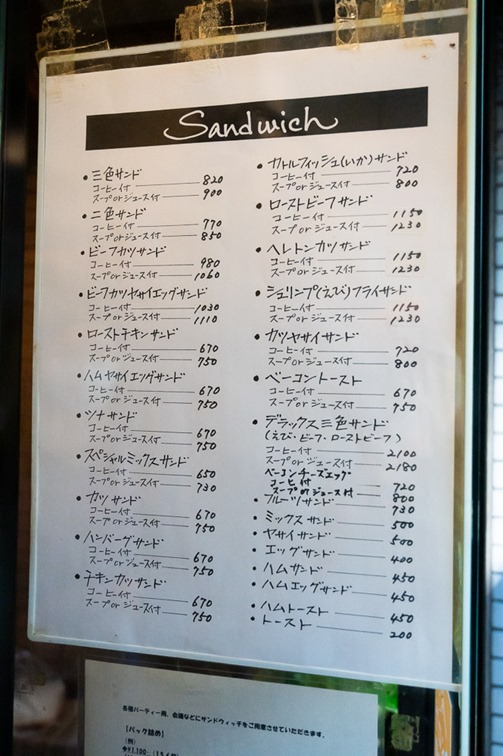 Sandwich
・三色サンド
コーヒー付 820
スープorジュース付 900
・二色サンド
コーヒー付 770
スープorジュース付 850
・ビーフカツサンド
コーヒー付 980
スープorジュース付 1060
・ビーフカツヤサイエッグサンド
コーヒー付 1030
スープorジュース付 1110
・ローストチキンサンド
コーヒー付 670
スープorジュース付 750
・ハムヤサイエッグサンド
コーヒー付 670
スープorジュース付 750
・ツナサンド
コーヒー付 670
スープorジュース付 750
・スペシャルミックスサンド
コーヒー付 650
スープorジュース付 730
・カツサンド
コーヒー付 670
スープorジュース付 750
・ハンバーグサンド
コーヒー付 670
スープorジュース付 750
・チキンカツサンド
コーヒー付 670
スープorジュース付 750
・カトルフィッシュ(いか)サンド
コーヒー付 720
スープorジュース付 800
・ローストビーフサンド
コーヒー付 1150
スープorジュース付 1230
・ヘレトンカツサンド
コーヒー付 1150
スープorジュース付 1230
・シュリンプ(えび)フライサンド
コーヒー付 1150
スープorジュース付 1230
・カツヤサイサンド
コーヒー付 720
スープorジュース付 800
・ベーコントースト
コーヒー付 670
スープorジュース付 750
・デラックス三色サンド
(えび・ビーフ・ローストビーフ)
コーヒー付 2100
スープorジュース付 2180
ベーコンチーズエッグ
コーヒ付 720
スープorジュース付 800
・フルーツサンド 730
・ミックスサンド 500
・ヤサイサンド 500
・エッグサンド 400
・ハムサンド 450
・ハムエッグサンド 450
・ハムトースト 450
・トースト 200
各種パーティー用、会議などにサンドウィッチをご用意させていただきます。
【パック詰め】
(例)